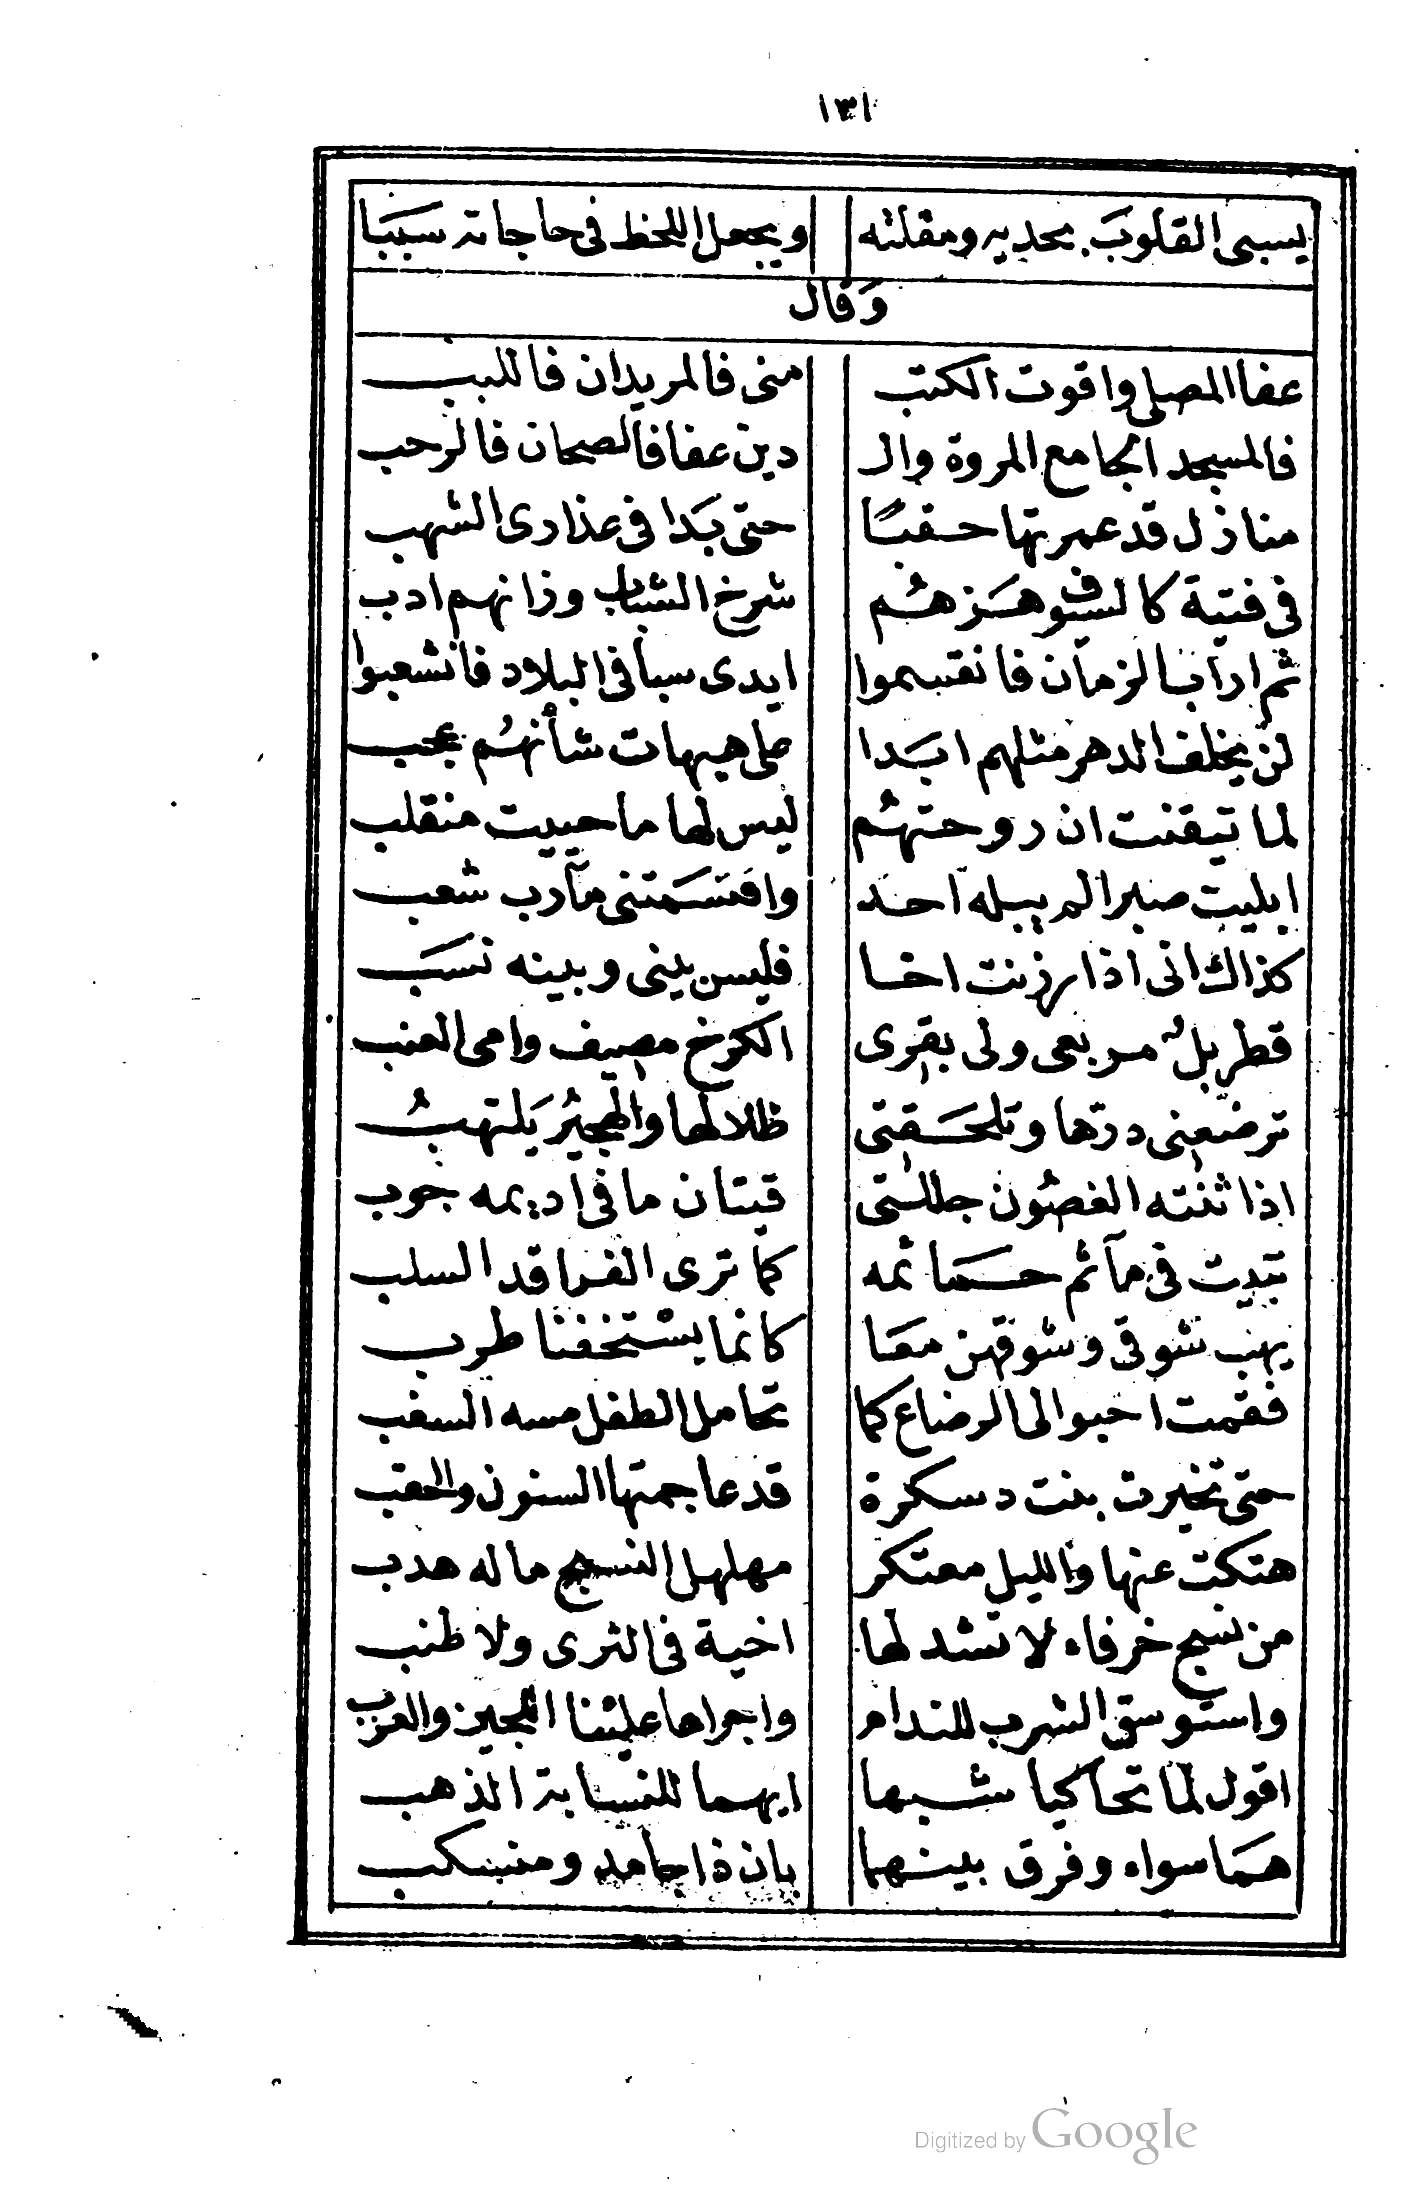 ١٣١
يسبى القلوب بخديه ومقلته ويجعل اللحظ فى حاجاته سببا
وقال
عفا المصلى واقوت الكتب منى فالمربدان فاللبب
فالمسجد الجامع المروة وال دين عفا فالصحان فالرحب
منازل قد عمرتها حقبًا حتى بدا فى عذارى الشهب
فى فتية كالسيوف هزهُم شرخ الشباب وزانهم ادب
ثم اراب الزمان فانقسموا ايدى سبا فى البلاد فانشعبوا
لن يخلف الدهر مثلهم ابدا على هيهات شأنهُم عجب
لما تيقنت ان روحتهُم ليس لها ما حييت منقلب
ابليت صبرا لم يبله احد واقتسمتنى مآرب شعب
كذاك انى اذا رزئت اخا فليس بينى وبينه نسب
قطربل مربعى ولى بقرى الكرخ مصيف وامى العنب
ترضعنى درّها وتلحقنى ظلالها والهجير يلتهبُ
اذا ثنته الغصُون جللنى قينان ما فى اديمه جوب
تبيت فى مآثم حمائمه كما ترى الفراقد السلب
يهب شوقى وشوقهن معا كانما يستخفنا طرب
فقمت احبو الى الرضاع كما تحامل الطفل مسه السغب
حتى تخيرت بنت دسكرة قد عاجمتها السنون والحقب
هتكت عنها والليل معتكر مهلهل النسج ماله هدب
من نسج خرفاء لا تشد لها اخية فى الثرى ولا طنب
واستوسق الشرب للندام واجراها علينا اللجين والغرب
اقول لما تحاكيا شبها ايهما للنسابة الذهب
هما سواء وفرق بينهما بان ذا جامد ومنسكب
Digitized by Google